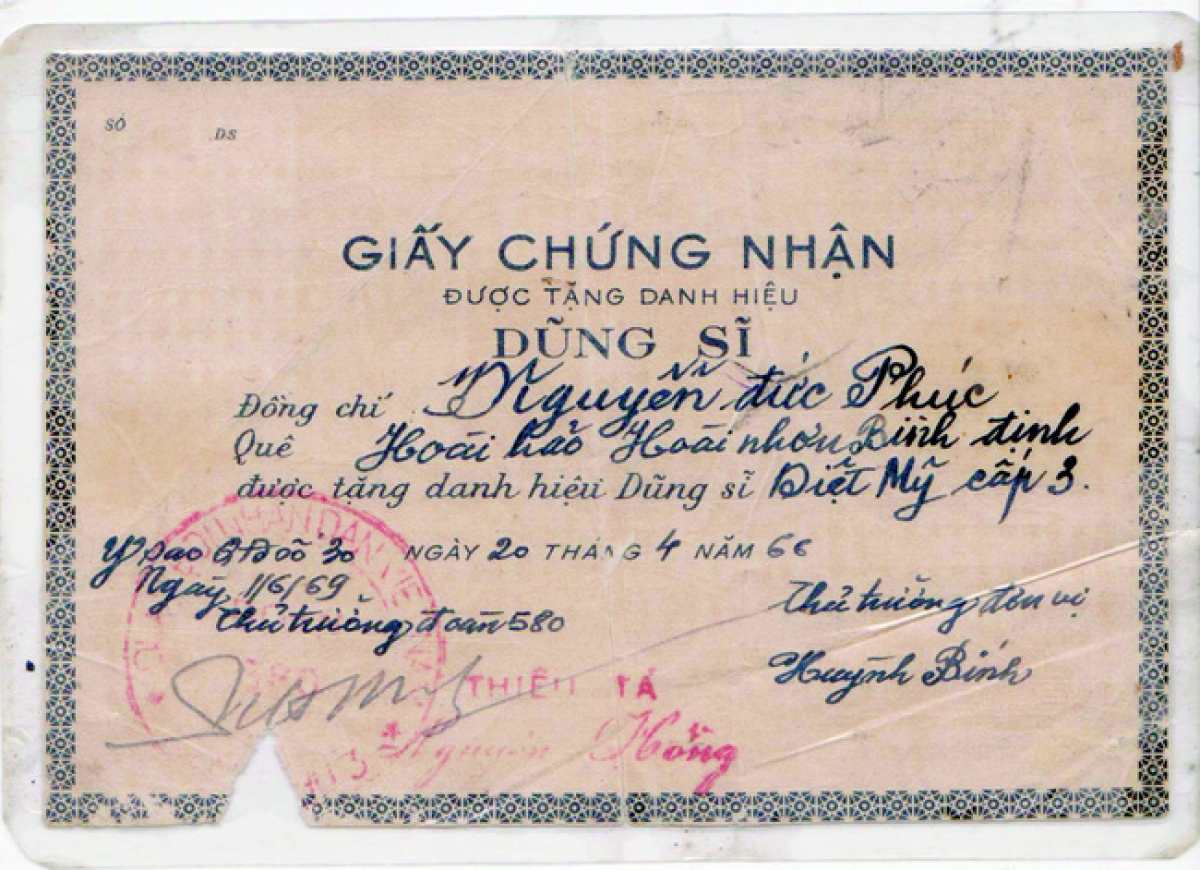 SỐ DS
GIẤY CHỨNG NHẬN
ĐƯỢC TẶNG DANH HIỆU
DŨNG SĨ
Đồng chí Nguyễn đức Phúc
Quê Hoài hảo Hoài nhơn Bình định
được tặng danh hiệu Dũng sĩ Diệt Mỹ cấp 3.
Y sao QĐ số 30 NGÀY 20 THÁNG 4 NĂM 66
Ngày 1/6/69
Thủ trưởng đoàn 580
Thủ trưởng đơn vị
Huỳnh Bính
THIẾU TÁ
Nguyễn Hồng